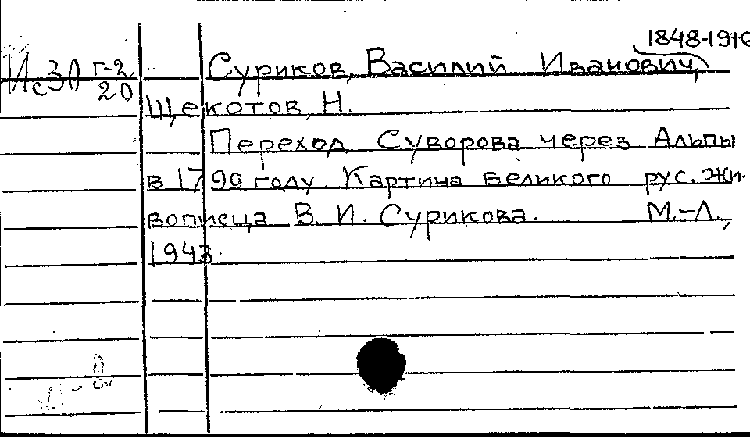 1848-1916
Ис30 Г-2 Суриков, Василий Иванович,
20
Щекотов, Н.
Переход Суворова через Альпы
в 1799 году. Картина великого рус. жи-
вописца В. И. Сурикова. М.-Л.,
1943.